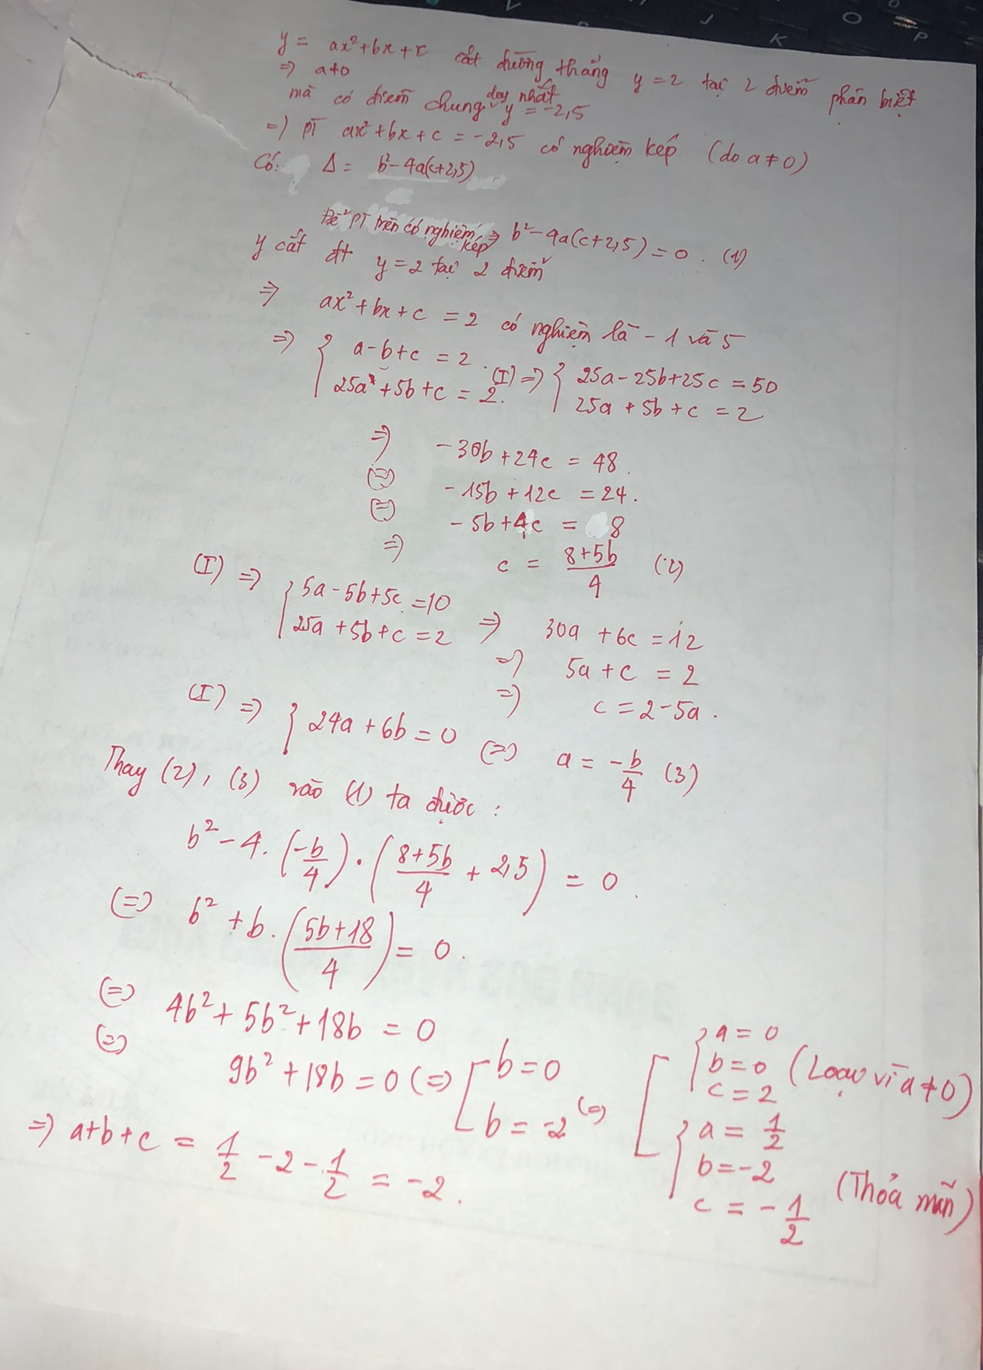 y = ax² + bx + c cắt đường thẳng y = 2 tại 2 điểm phân biệt
=> a ≠ 0
mà có điểm chung duy nhất y = -2,5
=> PT ax² + bx + c = -2,5 có nghiệm kép (do a ≠ 0)
Có: Δ = b² - 4a(c+2,5)
Để PT trên có nghiệm kép => b² - 4a(c+2,5) = 0. (1)
y cắt đt y = 2 tại 2 điểm
=> ax² + bx + c = 2 có nghiệm là -1 và 5
=> { a - b + c = 2. (I) => { 25a - 25b + 25c = 50
25a + 5b + c = 2. 25a + 5b + c = 2
=> -30b + 24c = 48.
(=) -15b + 12c = 24.
(=) -5b + 4c = 8
=> c = (8+5b)/4 (2)
(I) => { 5a - 5b + 5c = 10
25a + 5b + c = 2 => 30a + 6c = 12
=> 5a + c = 2
=> c = 2 - 5a.
(I) => { 24a + 6b = 0 (=) a = -b/4 (3)
Thay (2), (3) vào (1) ta được:
b² - 4. (-b/4) . ((8+5b)/4 + 2,5) = 0.
(=) b² + b. ((5b+18)/4) = 0.
(=) 4b² + 5b² + 18b = 0
(=) 9b² + 18b = 0 (=) [ b = 0
b = -2 (=) [ { a = 0
b = 0 (Loại vì a ≠ 0)
c = 2
{ a = 1/2
b = -2 (Thỏa mãn)
c = -1/2
=> a+b+c = 1/2 - 2 - 1/2 = -2.
J
K
O
P